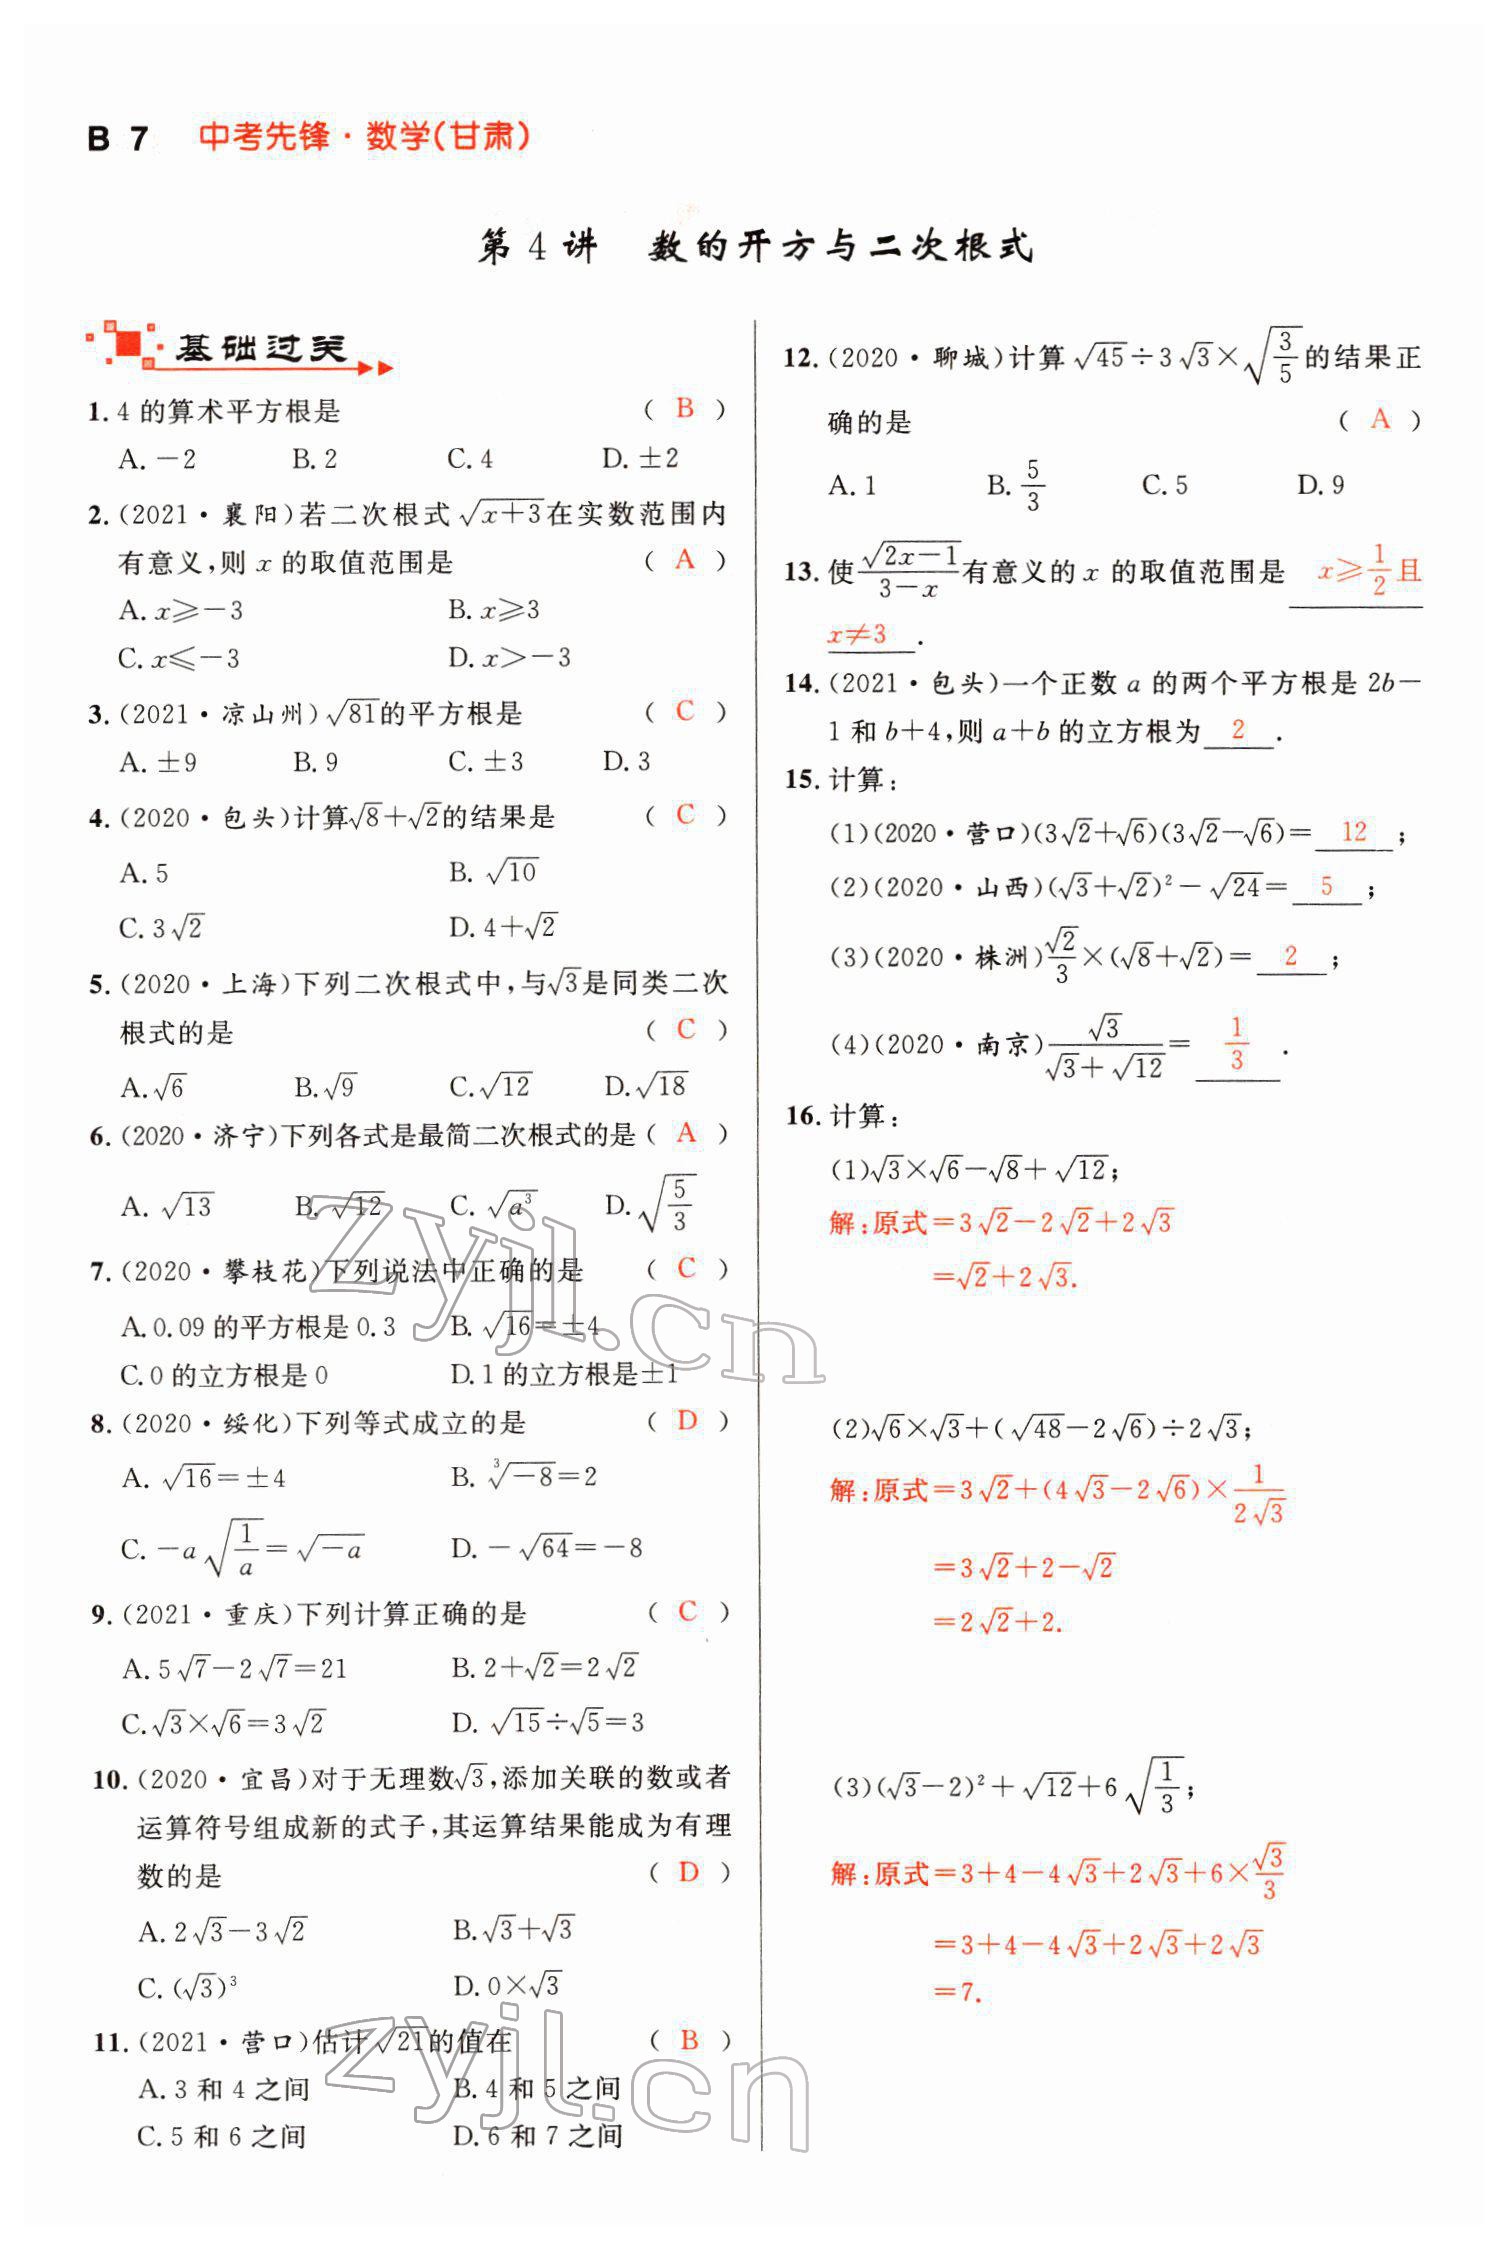 B 7 中考先锋·数学(甘肃)
第4讲 数的开方与二次根式
基础过关
1. 4的算术平方根是 ( B )
A. －2 B. 2 C. 4 D. ±2
2. (2021·襄阳)若二次根式√(x+3)在实数范围内
有意义,则 x 的取值范围是 ( A )
A. x⩾－3 B. x⩾3
C. x⩽－3 D. x>－3
3. (2021·凉山州)√81的平方根是 ( C )
A. ±9 B. 9 C. ±3 D. 3
4. (2020·包头)计算√8+√2的结果是 ( C )
A. 5 B. √10
C. 3√2 D. 4+√2
5. (2020·上海)下列二次根式中,与√3是同类二次
根式的是 ( C )
A. √6 B. √9 C. √12 D. √18
6. (2020·济宁)下列各式是最简二次根式的是( A )
A. √13 B. √12 C. √(a³) D. √(5/3)
7. (2020·攀枝花)下列说法中正确的是 ( C )
A. 0.09的平方根是0.3 B. √16=±4
C. 0的立方根是0 D. 1的立方根是±1
8. (2020·绥化)下列等式成立的是 ( D )
A. √16=±4 B. ³√(－8)=2
C. －a√(1/a)=√(－a) D. －√64=－8
9. (2021·重庆)下列计算正确的是 ( C )
A. 5√7－2√7=21 B. 2+√2=2√2
C. √3×√6=3√2 D. √15÷√5=3
10. (2020·宜昌)对于无理数√3,添加关联的数或者
运算符号组成新的式子,其运算结果能成为有理
数的是 ( D )
A. 2√3－3√2 B. √3+√3
C. (√3)³ D. 0×√3
11. (2021·营口)估计√21的值在 ( B )
A. 3和4之间 B. 4和5之间
C. 5和6之间 D. 6和7之间
12. (2020·聊城)计算√45÷3√3×√(3/5)的结果正
确的是 ( A )
A. 1 B. 5/3 C. 5 D. 9
13. 使√(2x－1)/(3－x)有意义的 x 的取值范围是 x⩾1/2且
x≠3 .
14. (2021·包头)一个正数 a 的两个平方根是 2b－
1和 b+4,则 a+b 的立方根为 2 .
15. 计算:
(1)(2020·营口)(3√2+√6)(3√2－√6)= 12 ;
(2)(2020·山西)(√3+√2)²－√24= 5 ;
(3)(2020·株洲)√2/3×(√8+√2)= 2 ;
(4)(2020·南京)√3/(√3+√12)= 1/3 .
16. 计算:
(1)√3×√6－√8+√12;
解:原式=3√2－2√2+2√3
=√2+2√3.
(2)√6×√3+(√48－2√6)÷2√3;
解:原式=3√2+(4√3－2√6)×1/(2√3)
=3√2+2－√2
=2√2+2.
(3)(√3－2)²+√12+6√(1/3);
解:原式=3+4－4√3+2√3+6×√3/3
=3+4－4√3+2√3+2√3
=7.
zyjl.cn
zyjl.cn